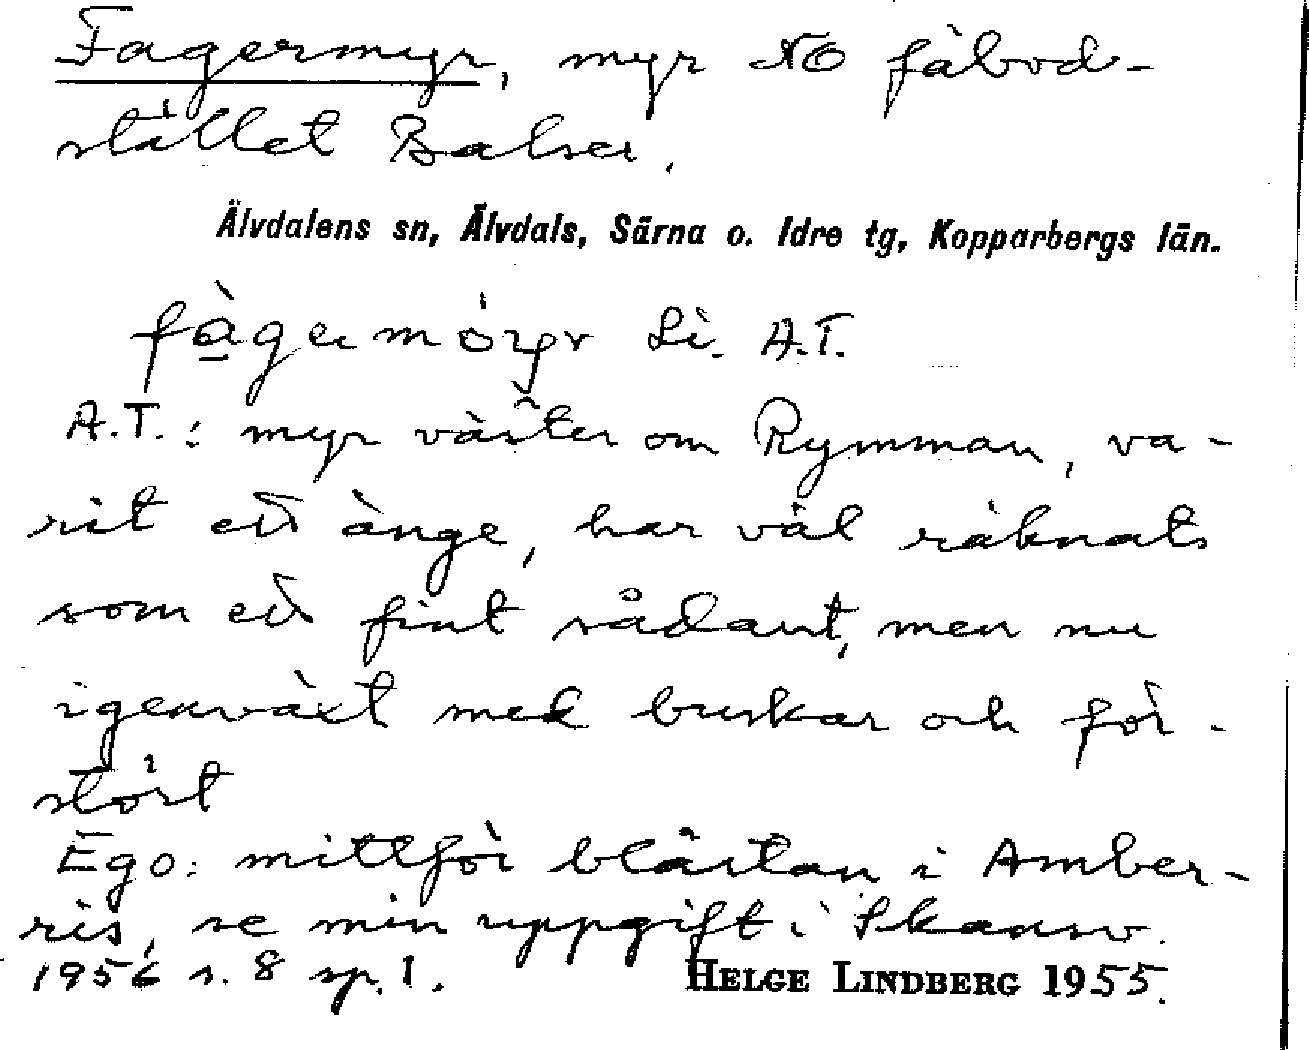 Fagermyr, myr NO fäbod-
stället Balser.
Älvdalens sn, Älvdals, Särna o. Idre tg, Kopparbergs län.
Li. A.T.
A.T.: myr väster om Rymman, va-
rit ett änge, har väl räknats
som ett fint sådant, men nu
igenväxt med buskar och för-
stört
Ego: mittför blästan i Amber-
ris, se min uppgift i Skansv.
1956 s. 8 sp. 1. HELGE LINDBERG 1955.